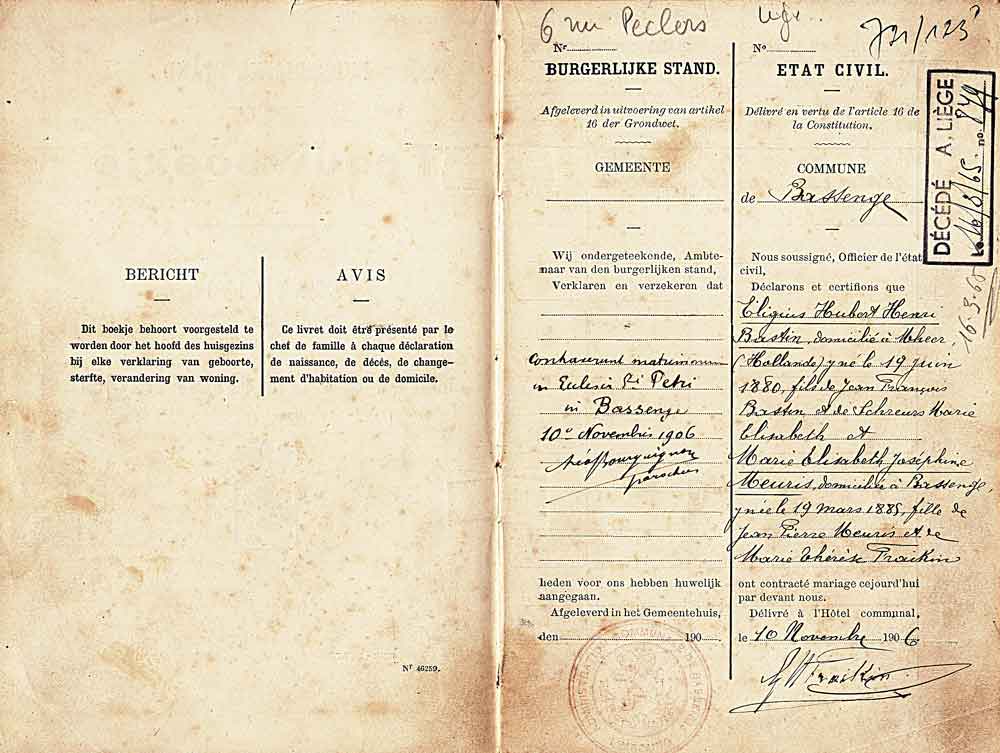 BERICHT
Dit boekje behoort voorgesteld te
worden door het hoofd des huisgezins
bij elke verklaring van geboorte,
sterfte, verandering van woning.
AVIS
Ce livret doit être présenté par le
chef de famille à chaque déclaration
de naissance, de décès, de change-
ment d'habitation ou de domicile.
Nr 46259.
6 rue Peclers
Nr
BURGERLIJKE STAND.
Afgeleverd in uitvoering van artikel
16 der Grondwet.
GEMEENTE
Wij ondergeteekende, Ambte-
naar van den burgerlijken stand,
Verklaren en verzekeren dat
contraxerunt matrimonium
in Ecclesia Sti Petri
in Bassenge
10a Novembris 1906
Bourguignon
parochus
heden voor ons hebben huwelijk
aangegaan.
Afgeleverd in het Gemeentehuis,
den 190
721/123
No
ETAT CIVIL.
Délivré en vertu de l'article 16 de
la Constitution.
COMMUNE
de Bassenge
Nous soussigné, Officier de l'état
civil,
Déclarons et certifions que
Eligius Hubert Henri
Bastin, domicilié à Mheer
(Hollande) y né le 19 juin
1880, fils de Jean François
Bastin et de Schreurs Marie
Elisabeth et
Marie Elisabeth Joséphine
Meuris, domiciliée à Bassenge,
y née le 19 mars 1885, fille de
Jean Pierre Meuris et de
Marie Thérèse Fraikin
ont contracté mariage cejourd'hui
par devant nous.
Délivré à l'Hôtel communal,
le 10 Novembre 1906
Fraikin
DÉCÉDÉ A LIÈGE
Le 16/3/65 no. 849
16.3.65